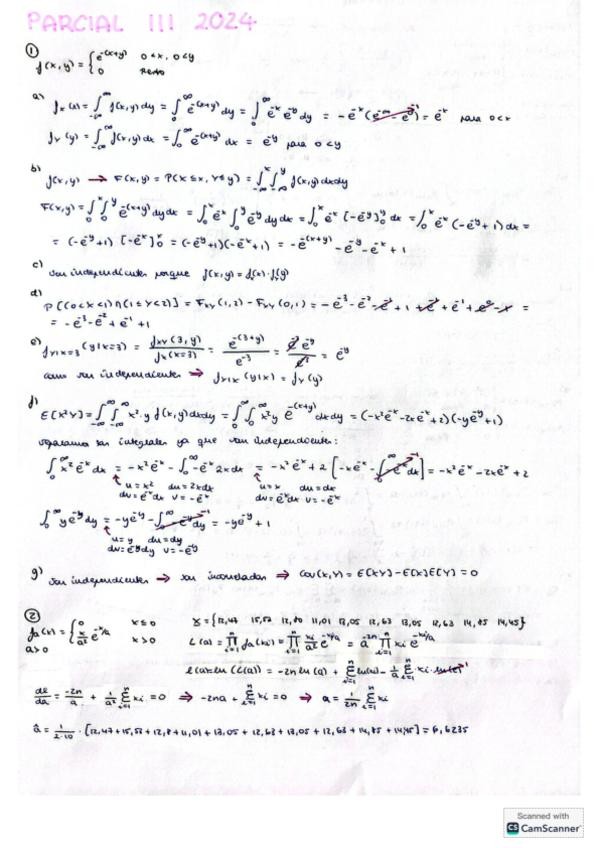 PARCIAL III 2024
①
f(x,y) = { e^-(x+y) 0<x, 0<y
0 Resto
a) fx(x) = ∫_-∞^∞ f(x,y)dy = ∫_0^∞ e^-(x+y) dy = ∫_0^∞ e^-x e^-y dy = -e^-x (e^-∞ - e^-0) = e^-x para 0<x
fy(y) = ∫_-∞^∞ f(x,y)dx = ∫_0^∞ e^-(x+y) dx = e^-y para 0<y
b) f(x,y) → F(x,y) = P(X≤x, Y≤y) = ∫_-∞^x ∫_-∞^y f(x,y)dxdy
F(x,y) = ∫_0^x ∫_0^y e^-(x+y) dydx = ∫_0^x e^-x ∫_0^y e^-y dydx = ∫_0^x e^-x [-e^-y]_0^y dx = ∫_0^x e^-x (-e^-y+1) dx =
= (-e^-y+1) [-e^-x]_0^x = (-e^-y+1)(-e^-x+1) = -e^-(x+y) - e^-y - e^-x + 1
c) son independientes porque f(x,y) = f(x)·f(y)
d) P[(0<X<1)∩(1≤Y<2)] = F_XY(1,2) - F_XY(0,1) = -e^-3 - e^-2 - e^-1 + 1 + e^-1 + e^-1 + e^0 - 1 =
= -e^-3 - e^-2 + e^-1 + 1
e) f_Y|X=3(y|x=3) = f_XY(3,y) / f_X(x=3) = e^-(3+y) / e^-3 = e^-3 e^-y / e^-3 = e^-y
como son independientes → f_Y|X(y|x) = f_Y(y)
f)
E[X²Y] = ∫_-∞^∞ ∫_-∞^∞ x²·y f(x,y)dxdy = ∫_0^∞ ∫_0^∞ x²y e^-(x+y) dxdy = (-x²e^-x - 2xe^-x + 2)(-ye^-y + 1)
separamos las integrales ya que son independientes:
∫_0^∞ x² e^-x dx = -x²e^-x - ∫_0^∞ -e^-x 2xdx = -x²e^-x + 2 [-xe^-x - ∫_0^∞ -e^-x dx] = -x²e^-x - 2xe^-x + 2
u=x² du=2xdx u=x du=dx
dv=e^-x dx v=-e^-x dv=e^-x dx v=-e^-x
∫_0^∞ ye^-y dy = -ye^-y - ∫_0^∞ -e^-y dy = -ye^-y + 1
u=y du=dy
dv=e^-y dy v=-e^-y
g) son independientes → son incorreladas → Cov(X,Y) = E[XY] - E[X]E[Y] = 0
②
fa(x) = { 0 x≤0 x = {12,47 15,52 12,80 11,01 13,05 12,63 13,05 12,63 14,85 14,45}
x/a² e^-x/a x>0 L(a) = ∏_i=1^n fa(xi) = ∏_i=1^n xi/a² e^-xi/a = a^-2n ∏_i=1^n xi e^-xi/a
a>0
l(a) = ln(L(a)) = -2n ln(a) + Σ_i=1^n ln(xi) - 1/a Σ_i=1^n xi · ln(e)
dl/da = -2n/a + 1/a² Σ_i=1^n xi = 0 → -2na + Σ_i=1^n xi = 0 → a = 1/2n Σ_i=1^n xi
â = 1/2·10 · [12,47+15,52+12,8+11,01+13,05+12,63+13,05+12,63+14,85+14,45] = 6,6235
Scanned with
CS CamScanner